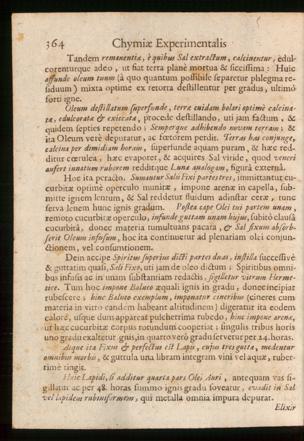 364 Chymiæ Experimentalis
Tandem remanentia, è quibus Sal extractum, calcinentur, edul-
corenturque adeo, ut fiat terra planè mortua & siccissima: Huic
affunde oleum tuum (à quo quantum possibile separetur phlegma re-
siduum) mixta optime ex retorta destillentur per gradus, ultimò
forti igne.
Oleum destillatum superfunde, terræ cuidam bolari optimè calcina-
tæ, edulcoratæ & exiccatæ, procede destillando, uti jam factum, &
quidem septies repetendo: Semperque adhibendo novam terram; &
ita Oleum verè depuratur, ac fœtorem perdit. Terras has conjunge,
calcina per dimidiam horam, superfunde aquam puram, & hæc red-
ditur cœrulea, hæc evaporet, & acquires Sal viride, quod veneri
aufert innatum ruborem redditque Lunæ analogum, figurâ externâ.
Hoc ita peracto. Sumantur Salis Fixi partes tres, immittantur cu-
curbitæ optimè operculo munitæ, impone arenæ in capella, sub-
mitte ignem lentum, & Sal reddetur fluidum adinstar ceræ, tunc
serva lenem hunc ignis gradum. Postea cape Olei tui partem unam,
remoto cucurbitæ operculo, infunde guttam unam hujus, subitò clausâ
cucurbitâ, donec materia tumultuans pacata, & Sal fixum absorb-
serit Oleum infusum, hoc ita continuetur ad plenariam olei conjun-
ctionem, vel consumtionem.
Dein accipe Spiritus superius dicti partes duas, instilla successivè
& guttatim quasi, Sali Fixo, uti jam de oleo dictum: Spiritibus omni-
bus infusis ac in unum substantiam redactis, sigilletur vitrum Herme-
ticè. Tum hoc impone Balneo æquali ignis in gradu, donec incipiat
rubescere; hinc Balneo exemptum, imponatur cineribus (cineres cum
materia in vitro eandem habeant altitudinem) digeratur ita eodem
calore, usque dum appareat pulcherrima rubedo, hinc impone arenæ,
ut hæc cucurbitæ corpus rotundum cooperiat: singulis tribus horis
uno gradu exaltetur ignis, in quarto verò gradu servetur per 24. horas.
Atque ita Fixus & perfectus est Lapis, cujus tres gutta, medentur
omnibus morbis, & guttula una libram integram vini vel aquæ, ruber-
rimè tingit.
Huic Lapidi, si additur quarta pars Olei Auri, antequam vas si-
gillatur ac per 48. horas summo ignis gradu foveatur, evadit in Sal
vel lapidem rubiniformem, qui metalla omnia impura depurat.
Elixir